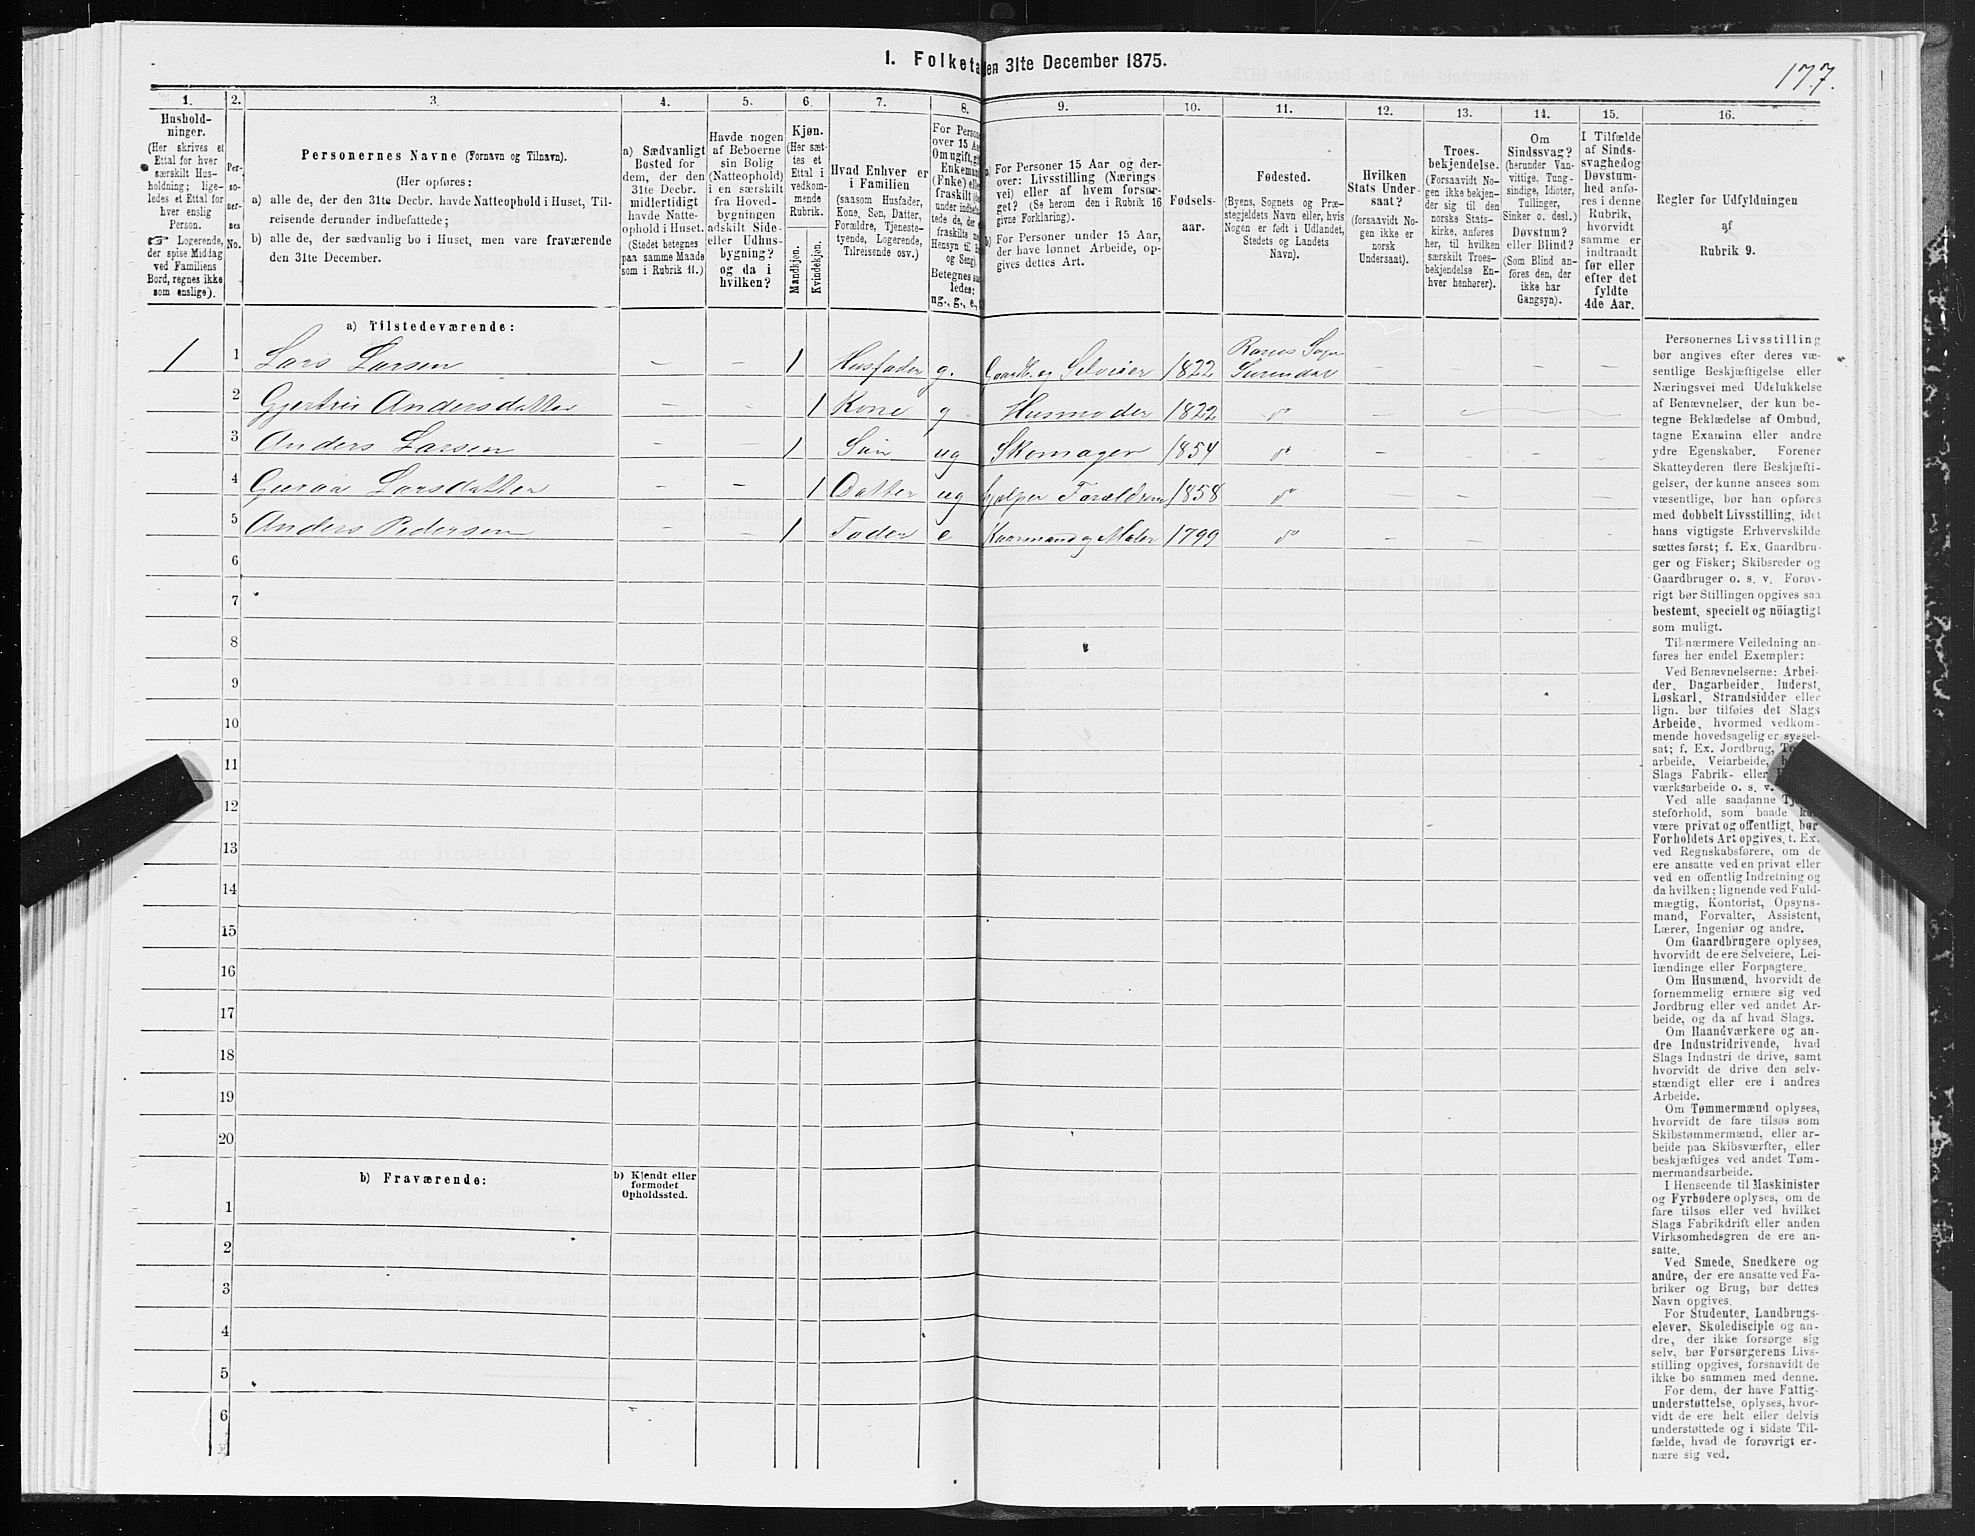 1. Folketa den 31te December 1875.
177.
1. 2. 3. 4. 5. 6. 7. 8. 9. 10. 11. 12. 13. 14. 15. 16.
Hushold-
ninger.
(Her skrives et
Ettal for hver
særskilt Hus-
holdning; lige-
ledes et Ettal for
hver enslig
Person.
☞ Logerende,
der spise Middag
ved Familiens
Bord, regnes ikke
som enslige).
Per-
so-
ner-
nes
No.
Personernes Navne (Fornavn og Tilnavn).
(Her opføres:
a) alle de, der den 31te Decbr. havde Natteophold i Huset, Til-
reisende derunder indbefattede;
b) alle de, der sædvanlig bo i Huset, men vare fraværende
den 31te December.
a) Sædvanligt
Bosted for
dem, der den
31te Decbr.
midlertidigt
havde Natte-
ophold i Huset.
(Stedet betegnes
paa samme Maade
som i Rubrik 11.)
Havde nogen
af Beboerne
sin Bolig
(Natteophold)
i en særskilt
fra Hoved-
bygningen
adskilt Side-
eller Udhus-
bygning?
og da i
hvilken?
Kjøn.
(Her sæt-
tes et
Ettal i
vedkom-
mende
Rubrik.
Mandkjøn.
Kvindekjøn.
Hvad Enhver er
i Familien
(saasom Husfader,
Kone, Søn, Datter,
Forældre, Tjeneste-
tyende, Logerende,
Tilreisende osv.)
For Person
over 15 Aa
Om ugift, gi
Enkeman
(Enke) elle
fraskilt
under indbe
tede de, d
fraskilte me
Hensyn til B
og Seng).
Betegnes saa
ledes:
ug., g., e.,
a) For Personer 15 Aar og der-
over: Livsstilling (Nærings
vei) eller af hvem forsør-
get? (Se herom den i Rubrik 16
givne Forklaring).
b) For Personer under 15 Aar,
der have lønnet Arbeide, op-
gives dettes Art.
Fødsels-
aar.
Fødested.
(Byens, Sognets og Præ-
stegjeldets Navn eller, hvis
Nogen er født i Udlandet,
Stedets og Landets
Navn).
Hvilken
Stats Under-
saat?
(forsaavidt No-
gen ikke er
norsk
Undersaat).
Troes-
bekjendelse.
(Forsaavidt No-
gen ikke bekjen-
der sig til den
norske Stats-
kirke, anføres
her, til hvilken
særskilt Troes-
bekjendelse En-
hver henhører).
Om
Sindssvag?
(herunder Van-
vittige, Tung-
sindige, Idioter,
Tullinger,
Sinker o. desl.)
Døvstum?
eller Blind?
(Som Blind an-
føres den, der
ikke har
Gangsyn).
I Tilfælde
af Sinds-
svaghed og
Døvstum-
hed anfø-
res i denne
Rubrik,
hvorvidt
samme er
indtraadt
før eller
efter det
fyldte
4de Aar.
Regler for Udfyldningen
af
Rubrik 9.
a) Tilstedeværende:
1 1 Lars Larsen – – 1 Husfader g. Gaardb. og Selveier 1822 Ranes Sogn Surendal – – – –
2 Gjertrui Andersdatter – – 1 Kone g Husmoder 1822 do – – – –
3 Anders Larsen – – 1 Søn ug Skomager 1854 do – – – –
4 Guraa Larsdatter – – 1 Datter ug hjelper Forældrene 1858 do – – – –
5 Anders Pedersen – – 1 Fader e Kaarmand og Maler 1799 do – – – –
6
7
8
9
10
11
12
13
14
15
16
17
18
19
20
b) Fraværende:
b) Kjendt eller
formodet
Opholdssted.
1
2
3
4
5
6
Personernes Livsstilling
bør angives efter deres væ-
sentlige Beskjæftigelse eller
Næringsvei med Udelukkelse
af Benævnelser, der kun be-
tegne Beklædelse af Ombud,
tagne Examina eller andre
ydre Egenskaber. Forener
Skatteyderen flere Beskjæfti-
gelser, der kunne ansees som
væsentlige, bør han opføres
med dobbelt Livsstilling, idet
hans vigtigste Erhvervskilde
sættes først; f. Ex. Gaardbru-
ger og Fisker; Skibsreder og
Gaardbruger o. s. v. Forøv-
rigt bør Stillingen opgives saa
bestemt, specielt og nöiagtigt
som muligt.
Til nærmere Veiledning an-
føres her endel Exempler:
Ved Benævnelserne: Arbei-
der, Dagarbeider, Inderst,
Løskarl, Strandsidder eller
lign. bør tilføies det Slags
Arbeide, hvormed vedkom-
mende hovedsagelig er syssel-
sat; f. Ex. Jordbrug, To
arbeide, Veiarbeide, b
Slags Fabrik- eller
værksarbeide o. s. v.
Ved alle saadanne Tje
steforhold, som baade ka
være privat og offentligt, bør
Forholdets Art opgives, t. Ex.
ved Regnskabsførere, om de
ere ansatte ved en privat eller
ved en offentlig Indretning og
da hvilken; lignende ved Fuld-
mægtig, Kontorist, Opsyns-
mand, Forvalter, Assistent,
Lærer, Ingeniør og andre.
Om Gaardbrugere oplyses,
hvorvidt de ere Selveiere, Lei-
lændinge eller Forpagtere.
Om Husmænd, hvorvidt de
fornemmelig ernære sig ved
Jordbrug eller ved andet Ar-
beide, og da af hvad Slags.
Om Haandværkere og an-
dre Industridrivende, hvad
Slags Industri de drive, samt
hvorvidt de drive den selv-
stændigt eller ere i andres
Arbeide.
Om Tømmermænd oplyses,
hvorvidt de fare tilsøs som
Skibstømmermænd, eller ar-
beide paa Skibsværfter, eller
beskjæftiges ved andet Tøm-
mermandsarbeide.
I Henseende til Maskinister
og Fyrbødere oplyses, om de
fare tilsøs eller ved hvilket
Slags Fabrikdrift eller anden
Virksomhedsgren de ere an-
satte.
Ved Smede, Snedkere og
andre, der ere ansatte ved Fa-
briker og Brug, bør dettes
Navn opgives.
For Studenter, Landbrugs-
elever, Skoledisciple og an-
dre, der ikke forsørge sig
selv, bør Forsørgerens Livs-
stilling opgives, forsaavidt de
ikke bo sammen med denne.
For dem, der have Fattig-
understøttelse, oplyses, hvor-
vidt de ere helt eller delvis
understøttede og i sidste Til-
fælde, hvad de forøvrigt er-
nære sig ved.